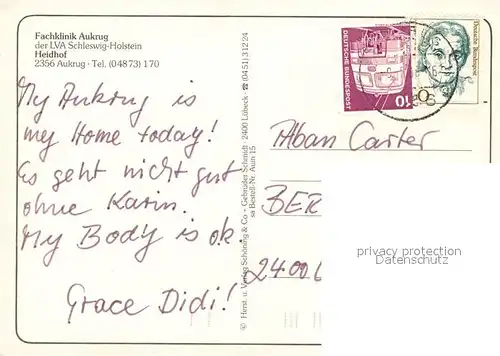 Fachklinik Aukrug
der LVA Schleswig-Holstein
Heidhof
2356 Aukrug · Tel. (04873) 170
My Aukrug is
my Home today!
Es geht nicht gut
ohne Karin.
My Body is ok.
Grace Didi!
© Herst. u. Verlag Schöning & Co · Gebrüder Schmidt · 2400 Lübeck · ☎ (04 51) 3 12 24
sa Bestell-Nr. Aum 15
DEUTSCHE BUNDESPOST
10
Deutsche Bundespost
Carter
BER
2400
privacy protection
Datenschutz